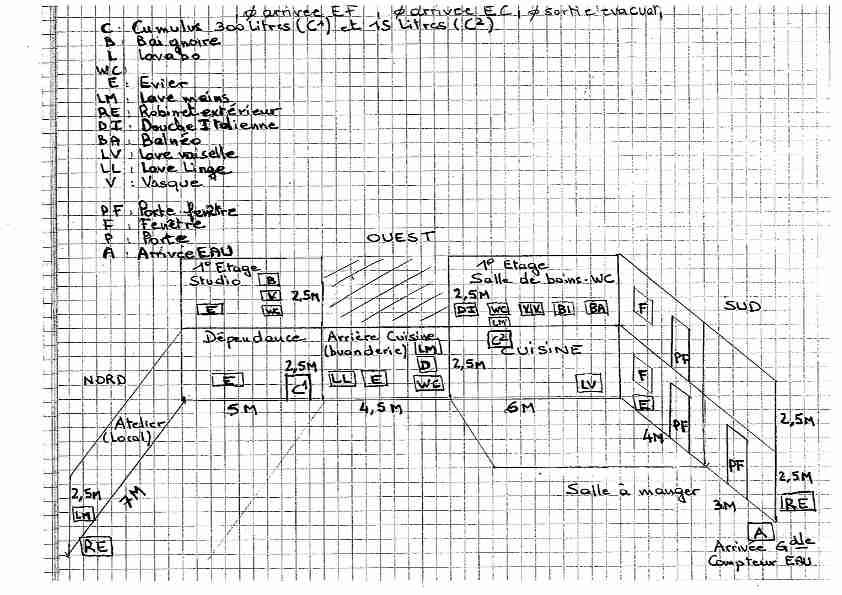 ø arrivée EF, ø arrivée EC, ø sortie évacuat,
C : Cumulus 300 Litres (C1) et 15 Litres (C2)
B : Baignoire
L : Lavabo
WC
E : Evier
LM : Lave mains
RE : Robinet extérieur
DI : Douche Italienne
BA : Balnéo
LV : Lave vaiselle
LL : Lave Linge
V : Vasque
PF : Porte fenêtre
F : Fenêtre
P : Porte
A : Arrivée EAU
OUEST
1° Etage
Studio
B
V
WC
E
2,5M
1° Etage
Salle de bains-WC
2,5M
DI
WC
LM
VV
BI
BA
F
SUD
Dépendance
E
2,5M
C1
Arrière Cuisine
(buanderie)
LM
D
WC
LL
E
C2
CUISINE
2,5M
LV
F
E
PF
PF
PF
NORD
5M
4,5M
6M
4M
2,5M
2,5M
Atelier
(Local)
2,5M
7M
LM
RE
Salle à manger
3M
RE
A
Arrivée Gdle
Compteur EAU